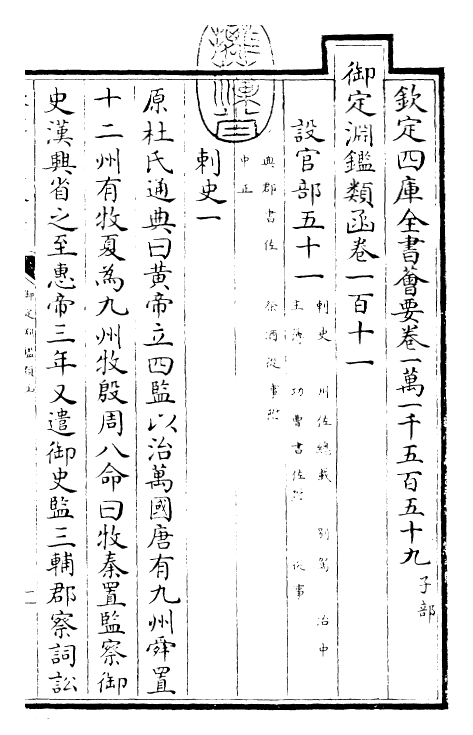 欽定四庫全書薈要卷一萬一千五百五十九 子部
御定淵鑑類函卷一百十一
設官部五十一 刺史 州佐總載 別駕 治中
主簿 功曹書佐附 從事
典郡書佐 祭酒從事附
中正
刺史一
原杜氏通典曰黄帝立四監以治萬國唐有九州舜置
十二州有牧夏為九州牧殷周八命曰牧秦置監察御
史漢興省之至惠帝三年又遣御史監三輔郡察詞訟